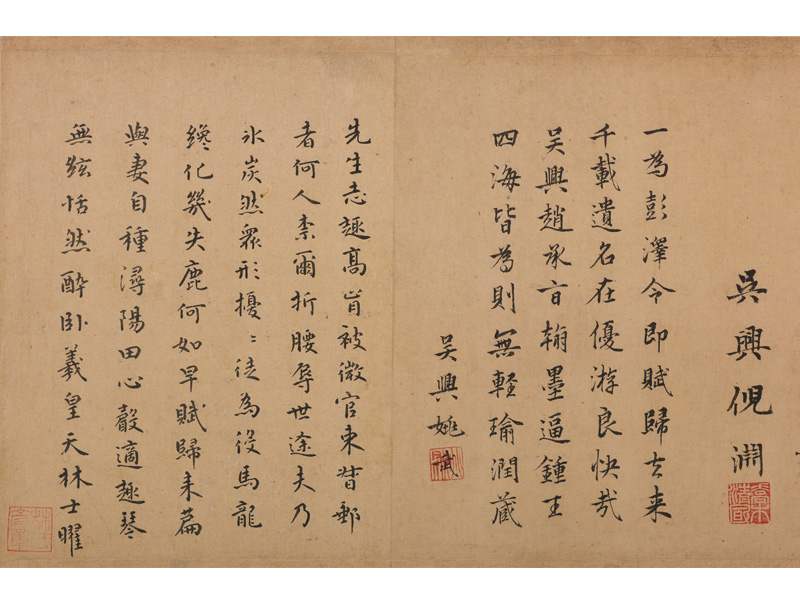 吳興倪淵
一為彭澤令即賦歸去来
千載遺名在優游良快哉
吴興趙承旨翰墨逼鍾王
四海皆為則無軽瑜潤蔵
吴興姚式
先生志趣髙肯被微官束督郵
者何人柰爾折腰辱世途夫乃
氷炭然衆形擾〻徒為役馬龍
纔化幾失鹿何如早賦歸来篇
與妻自種潯陽田心聲適趣琴
無絃恬然醉卧羲皇天林士曜